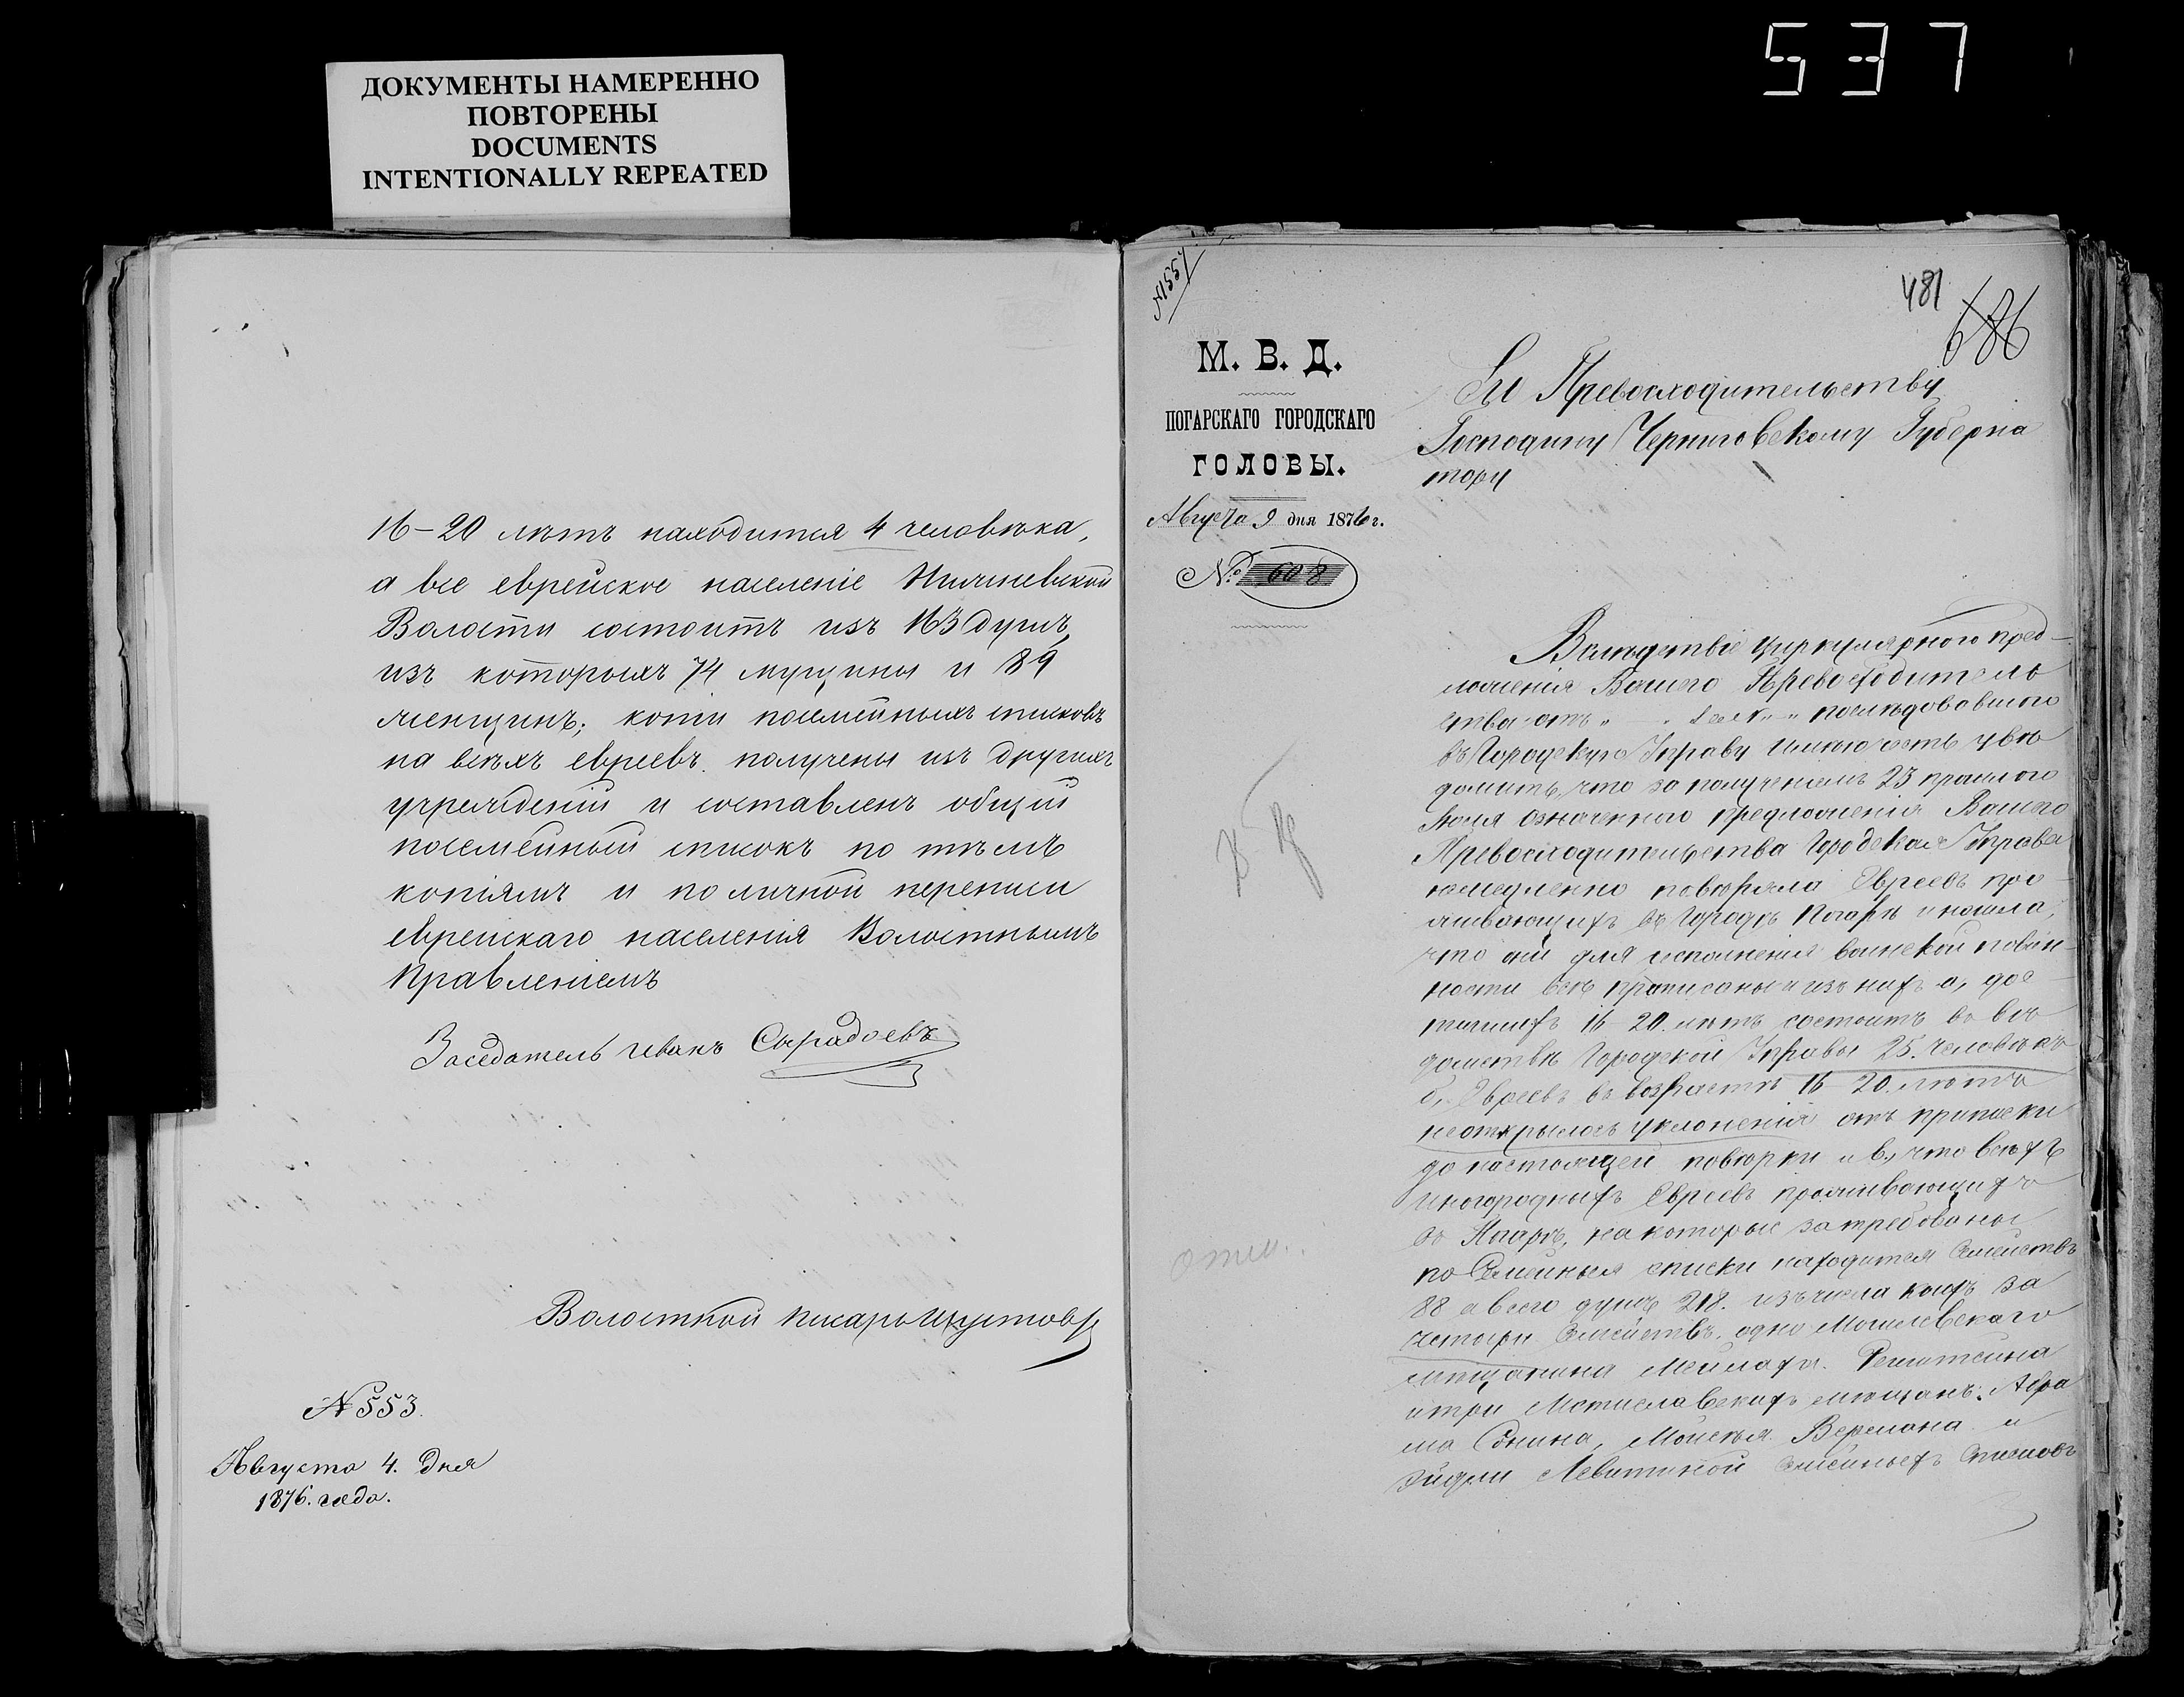 537
ДОКУМЕНТЫ НАМЕРЕННО
ПОВТОРЕНЫ
DOCUMENTS
INTENTIONALLY REPEATED
16–20 лѣтъ находится 4 человѣка,
а все еврейское населеніе
Волости состоитъ изъ 163 душъ,
изъ которыхъ 74 мущины и 89
женщинъ; копіи посемейныхъ списковъ
на всѣхъ евреевъ получены изъ другихъ
учрежденій и составленъ общій
посемейный списокъ по тѣмъ
копіямъ и по личной переписи
еврейскаго населенія Волостнымъ
Правленіемъ
Заседатель Иванъ
Волостной писарь
№ 553.
Августа 4. дня
1876. года.
481
686
М. В. Д.
ПОГАРСКАГО ГОРОДСКАГО
ГОЛОВЫ.
Августа 9 дня 1876 г.
№ 608
Его Превосходительству
Господину Черниговскому Губерна
тору
Вслѣдствіе циркулярного пред-
ложенія Вашего Превосходитель
ства отъ „ „ послѣдовавшого
въ Городскую Управу имѣю честь увѣ
домить, что за полученіемъ 23 прошлого
Іюля означенного предложенія Вашего
Превосходительства Городская Управа
немедленно повѣряла Евреевъ про
живающихъ въ Городѣ Погарѣ и нашла,
что они для исполненія воинской повин-
ности всѣ приписаны и изъ нихъ а, дос
тигшихъ 16–20. лѣтъ состоитъ въ вѣ
домствѣ Городской Управы 25. человѣкъ
б, Евреевъ въ возрастѣ 16–20. лѣтъ
неоткрылось уклоненія отъ приписки
до настоящей повѣрки и в, что всѣхъ
иногороднихъ Евреевъ проживающихъ
въ Погарѣ, на которые затребованы
по Семейныя списки находится Семействъ
88 а всего душъ 218. изъ числа коихъ за
четыри Семействъ, одно Могилевскаго
мѣщанина
и три Мстиславскихъ мѣщанъ: Абра
ма Сонина, Веремана и
Левитиной Семейныхъ Списковъ